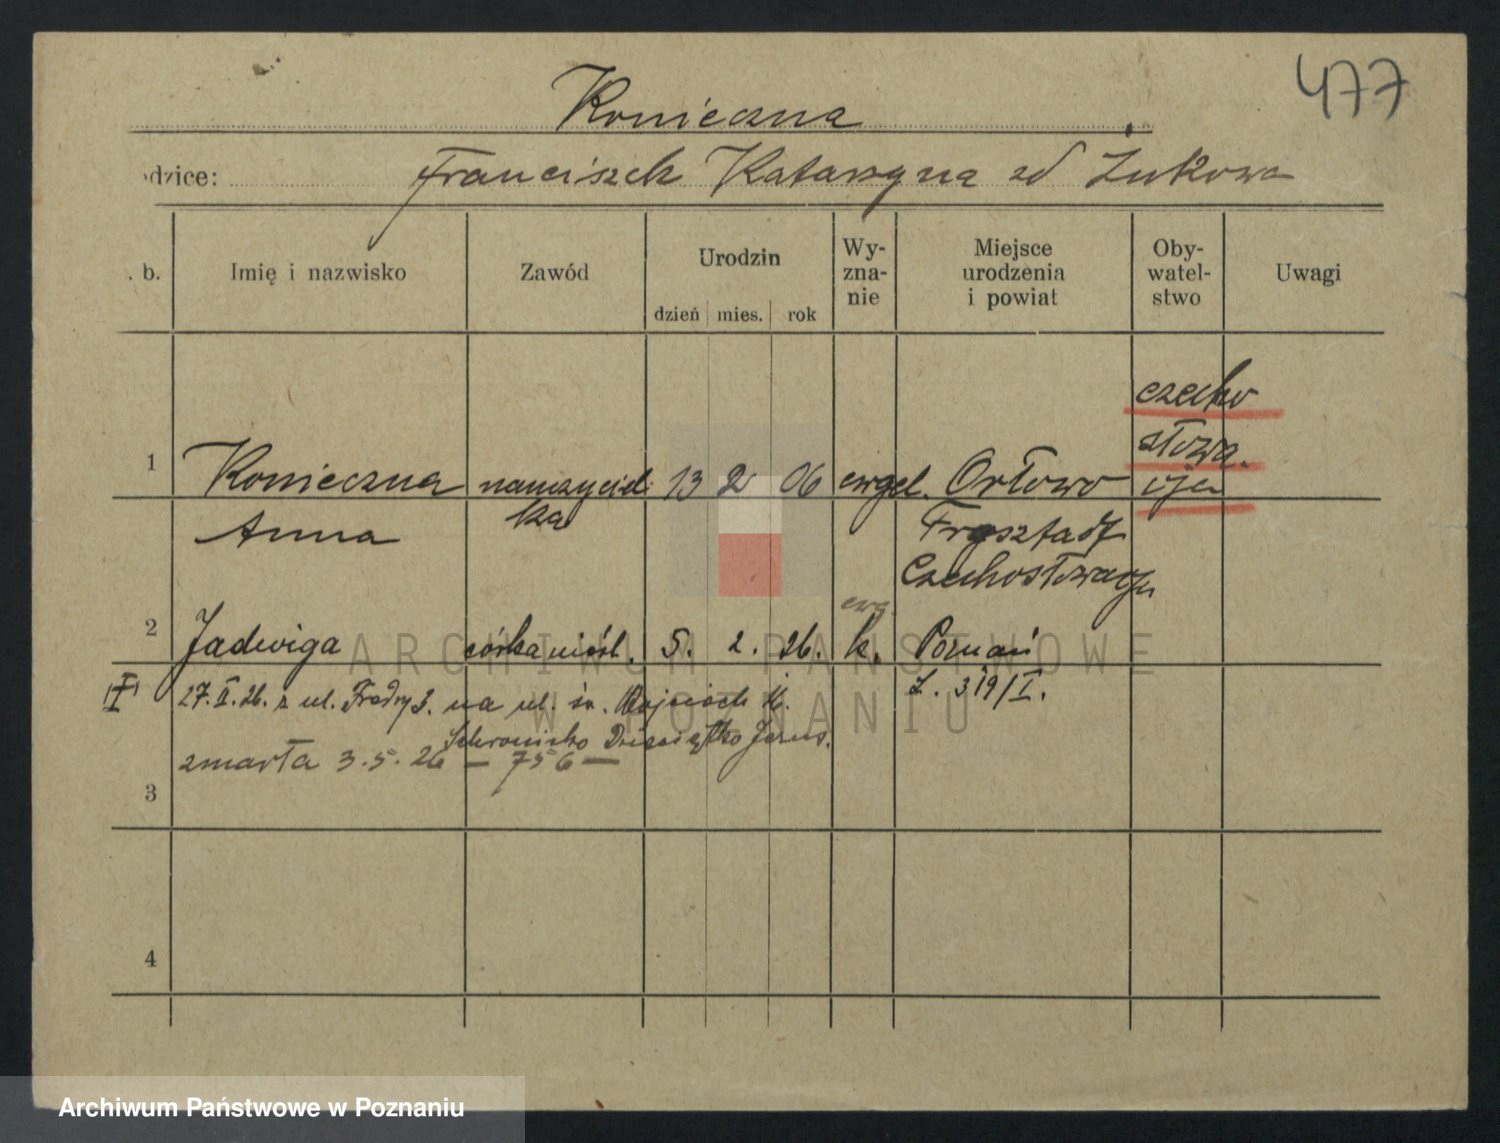 477
Konieczna
odzice: Franciszek Katarzyna zd Żukowa
. b. Imię i nazwisko Zawód Urodzin dzień mies. rok Wy- zna- nie Miejsce urodzenia i powiat Oby- watel- stwo Uwagi
czecho
słowa.
1 Konieczna nauczyciel 13 2 06 ewgel. Orłowo cja
Anna ka Frysztadt
Czechosłowacja
ewg.
2 Jadwiga córka nieśl. 5. 2. 26. k. Poznań
(I) 27. II. 26. z ul. Fredry 3. na ul. św. Wojciech L. 319/I.
Schronisko Dzieciątko Jezus.
zmarła 3.5.26 — 756 —
3
4
ARCHIWUM PAŃSTWOWE
W POZNANIU
Archiwum Państwowe w Poznaniu